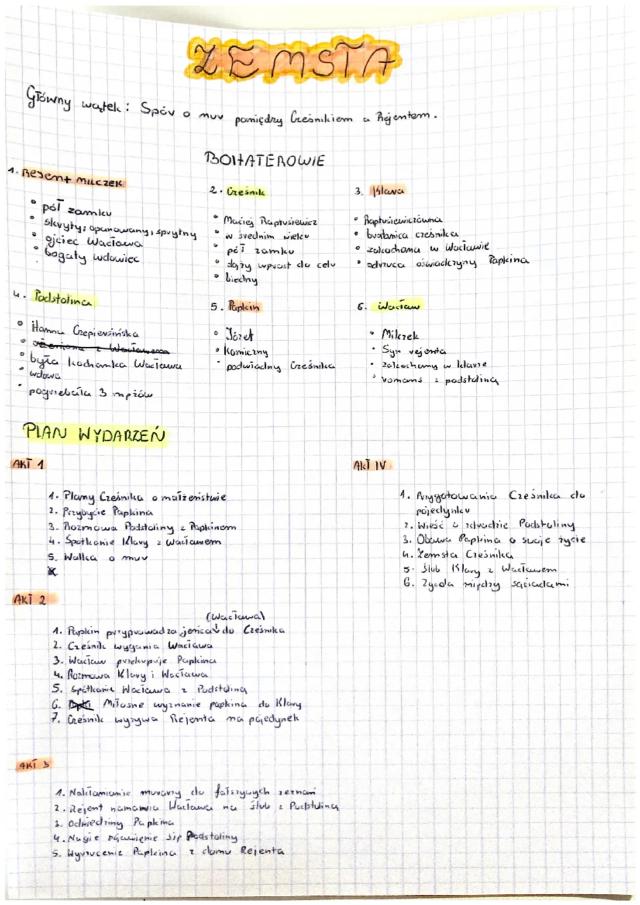 ZEMSTA
Główny wątek: Spór o mur pomiędzy Cześnikiem a Rejentem.
BOHATEROWIE
1. Rejent MILCZEK
° pół zamku
° skryty, opanowany, sprytny
° ojciec Wacława
° bogaty wdowiec
2. Cześnik
° Maciej Raptusiewicz
° w średnim wieku
° pół zamku
° dąży wprost do celu
° biedny
3. Klara
° Raptusiewiczówna
° bratanica cześnika
° zakochana w Wacławie
° odrzuca oświadczyny Papkina
4. Podstolina
° Hanna Czepiersińska
° była kochanka Wacława
° wdowa
° pogrzebała 3 mężów
5. Papkin
° Józef
° Komiczny
° podwładny Cześnika
6. Wacław
° Milczek
° Syn rejenta
° zakochany w klarze
° romans z podstoliną
PLAN WYDARZEŃ
AKT 1
1. Plany Cześnika o małżeństwie
2. Przybycie Papkina
3. Rozmowa Podstoliny z Papkinem
4. Spotkanie Klary z Wacławem
5. Walka o mur
AKT 2
(Wacława)
1. Papkin przyprowadza jeńca do Cześnika
2. Cześnik wygania Wacława
3. Wacław przekupuje Papkina
4. Rozmowa Klary i Wacława
5. Spotkanie Wacława z Podstoliną
6. Miłosne wyznanie papkina do Klary
7. Cześnik wyzywa Rejenta na pojedynek
AKT 3
1. Nakłamianie murarzy do fałszywych zeznań
2. Rejent namawia Wacława na ślub z Podstoliną
3. Odwiedziny Papkina
4. Nagłe pojawienie się Podstoliny
5. Wyrzucenie Papkina z domu Rejenta
AKT IV
1. Przygotowania Cześnika do
pojedynku
2. Wieść o zdradzie Podstoliny
3. Obawa Papkina o swoje życie
4. Zemsta Cześnika
5. Ślub Klary z Wacławem
6. Zgoda między sąsiadami